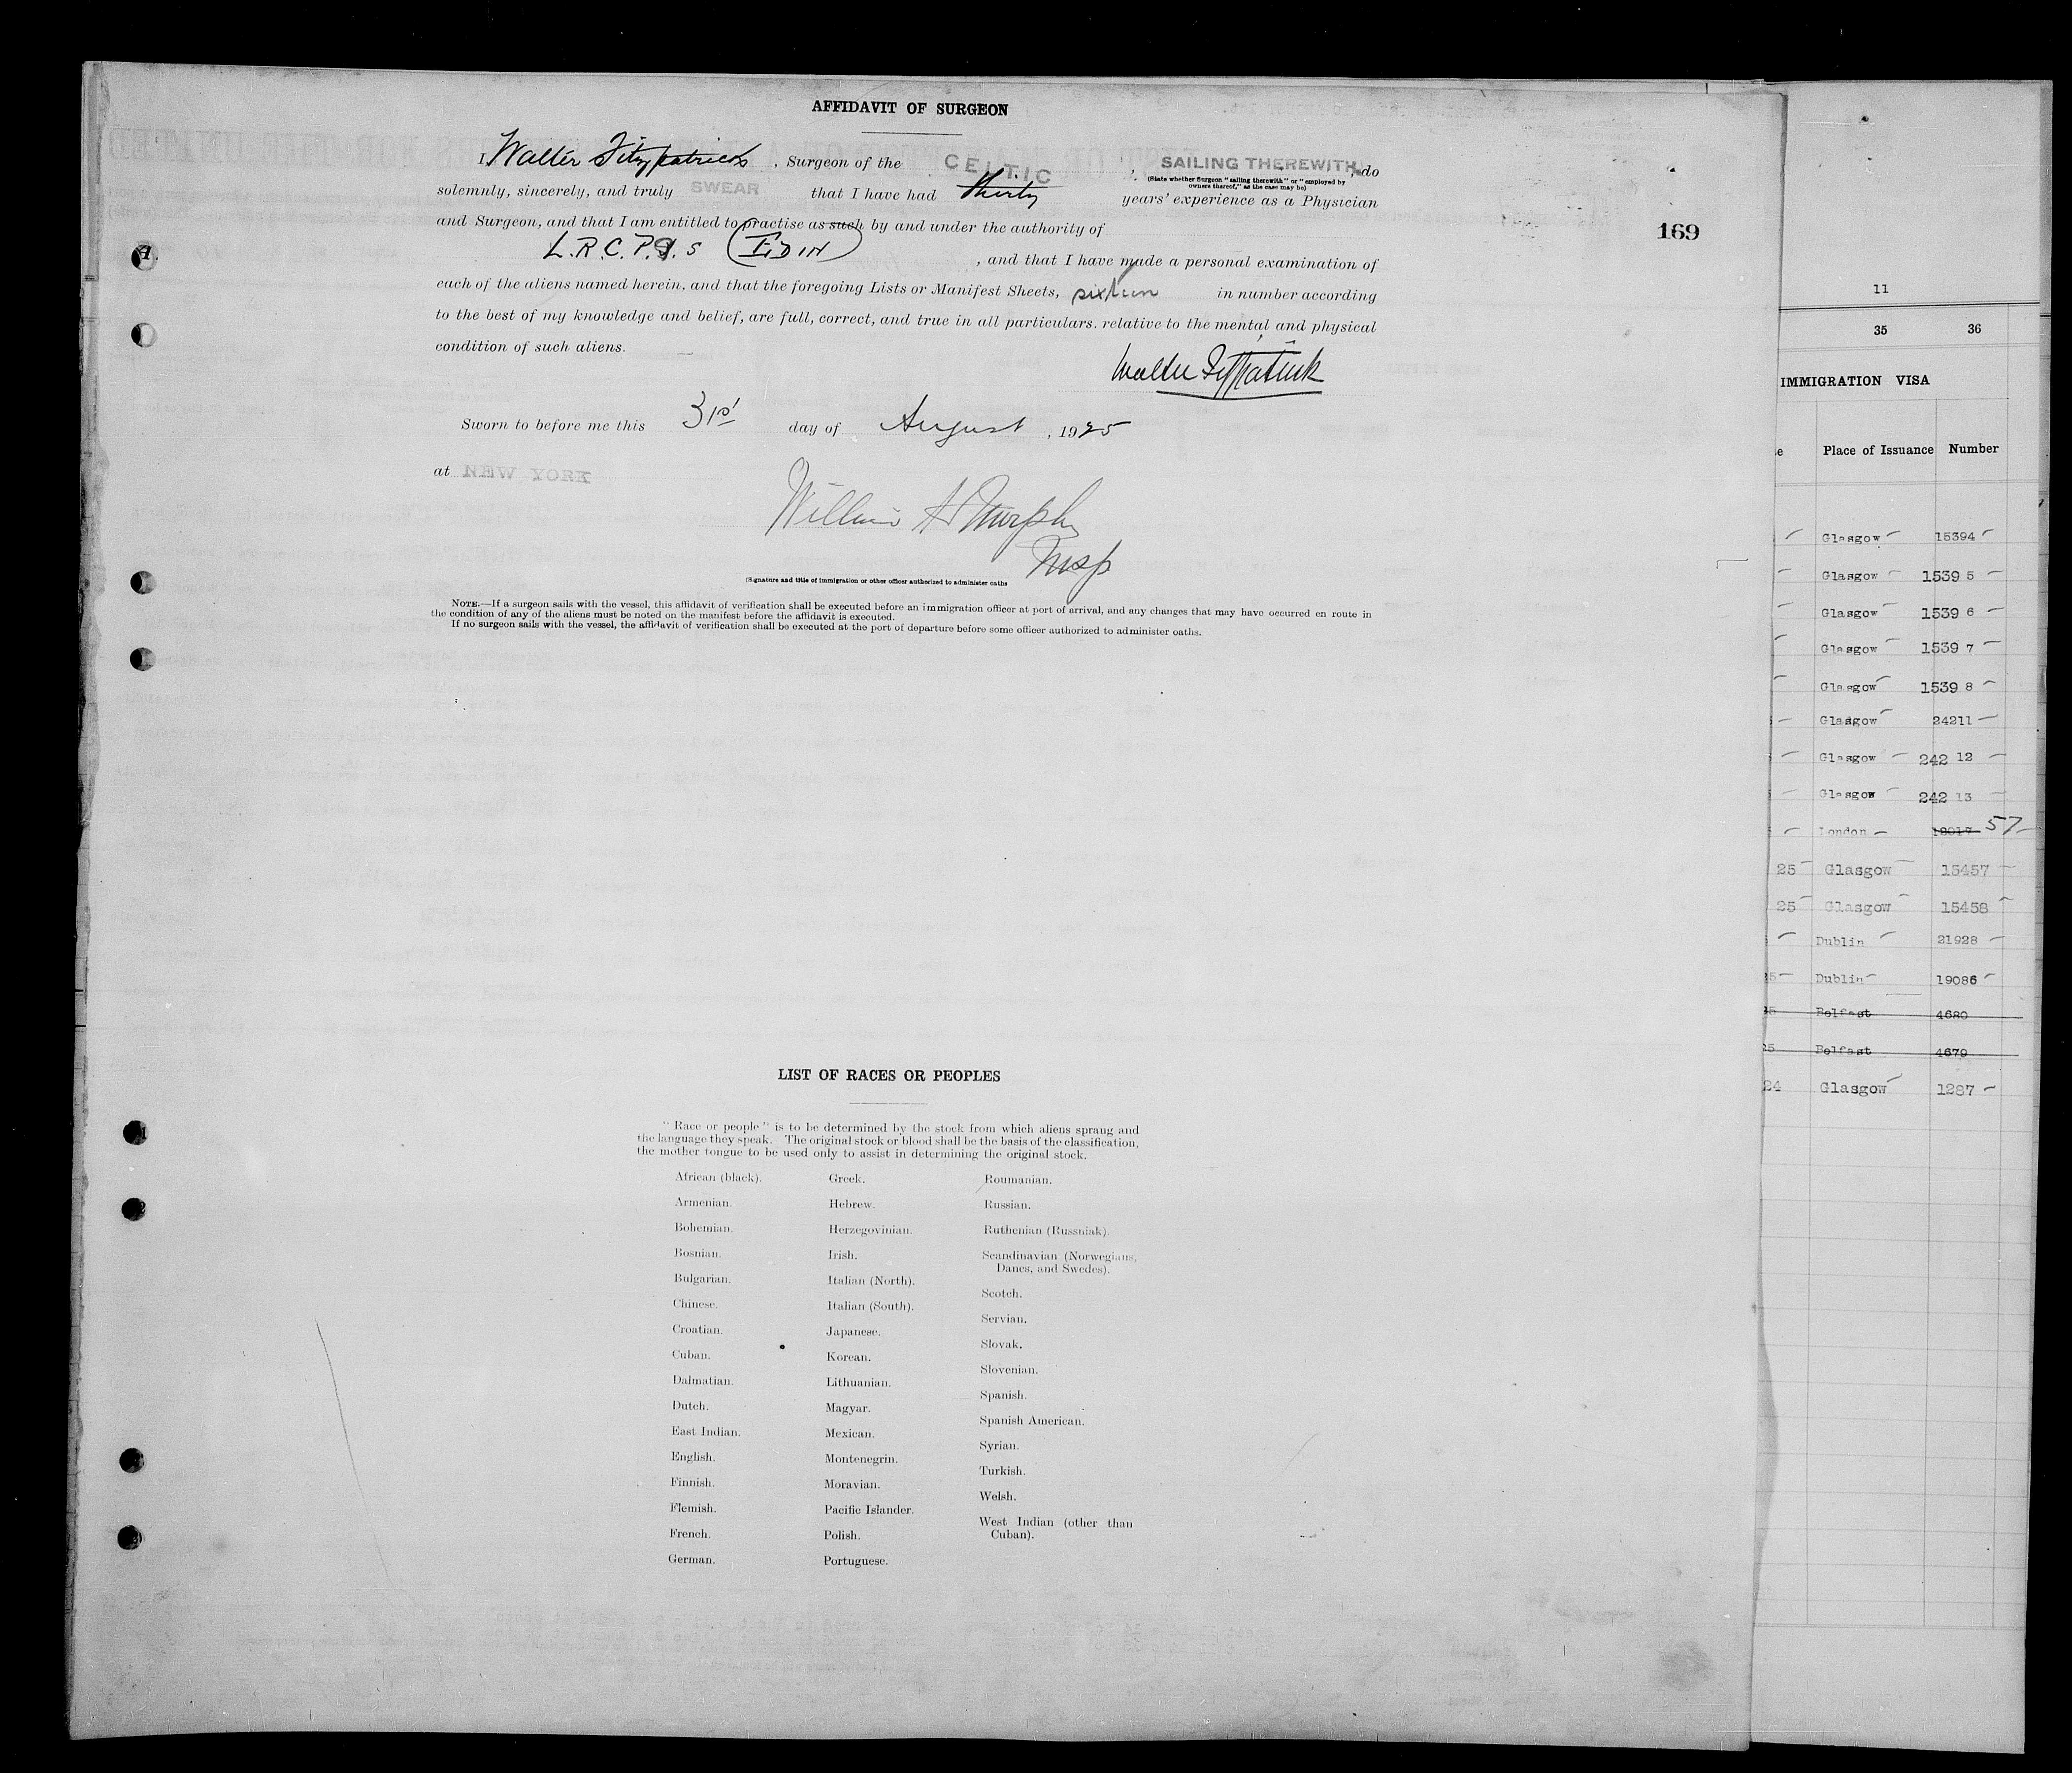 AFFIDAVIT OF SURGEON
I Walter Fitzpatrick, Surgeon of the CELTIC, SAILING THEREWITH, do
(State whether Surgeon "sailing therewith" or "employed by
owners thereof," as the case may be)
solemnly, sincerely, and truly SWEAR that I have had thirty years' experience as a Physician
and Surgeon, and that I am entitled to practise as such by and under the authority of
L.R.C.P.&S (EDIN) , and that I have made a personal examination of
each of the aliens named herein, and that the foregoing Lists or Manifest Sheets, sixteen in number according
to the best of my knowledge and belief, are full, correct, and true in all particulars. relative to the mental and physical
condition of such aliens.
Walter Fitzpatrick
Sworn to before me this 31st day of August, 1925
at NEW YORK
William A Murphy
Insp
(Signature and title of immigration or other officer authorized to administer oaths
NOTE.—If a surgeon sails with the vessel, this affidavit of verification shall be executed before an immigration officer at port of arrival, and any changes that may have occurred en route in
the condition of any of the aliens must be noted on the manifest before the affidavit is executed.
If no surgeon sails with the vessel, the affidavit of verification shall be executed at the port of departure before some officer authorized to administer oaths.
169
LIST OF RACES OR PEOPLES
"Race or people" is to be determined by the stock from which aliens sprang and
the language they speak. The original stock or blood shall be the basis of the classification,
the mother tongue to be used only to assist in determining the original stock.
African (black).
Armenian.
Bohemian.
Bosnian.
Bulgarian.
Chinese.
Croatian.
Cuban.
Dalmatian.
Dutch.
East Indian.
English.
Finnish.
Flemish.
French.
German.
Greek.
Hebrew.
Herzegovinian.
Irish.
Italian (North).
Italian (South).
Japanese.
Korean.
Lithuanian.
Magyar.
Mexican.
Montenegrin.
Moravian.
Pacific Islander.
Polish.
Portuguese.
Roumanian.
Russian.
Ruthenian (Russniak).
Scandinavian (Norwegians,
Danes, and Swedes).
Scotch.
Servian.
Slovak.
Slovenian.
Spanish.
Spanish American.
Syrian.
Turkish.
Welsh.
West Indian (other than
Cuban).
11
35 36
IMMIGRATION VISA
Place of Issuance Number
Glasgow 15394
Glasgow 15395
Glasgow 15396
Glasgow 15397
Glasgow 15398
Glasgow 24211
Glasgow 24212
Glasgow 24213
London 57
25 Glasgow 15457
25 Glasgow 15458
Dublin 21928
25 Dublin 19086
25 Belfast 4680
25 Belfast 4679
24 Glasgow 1287